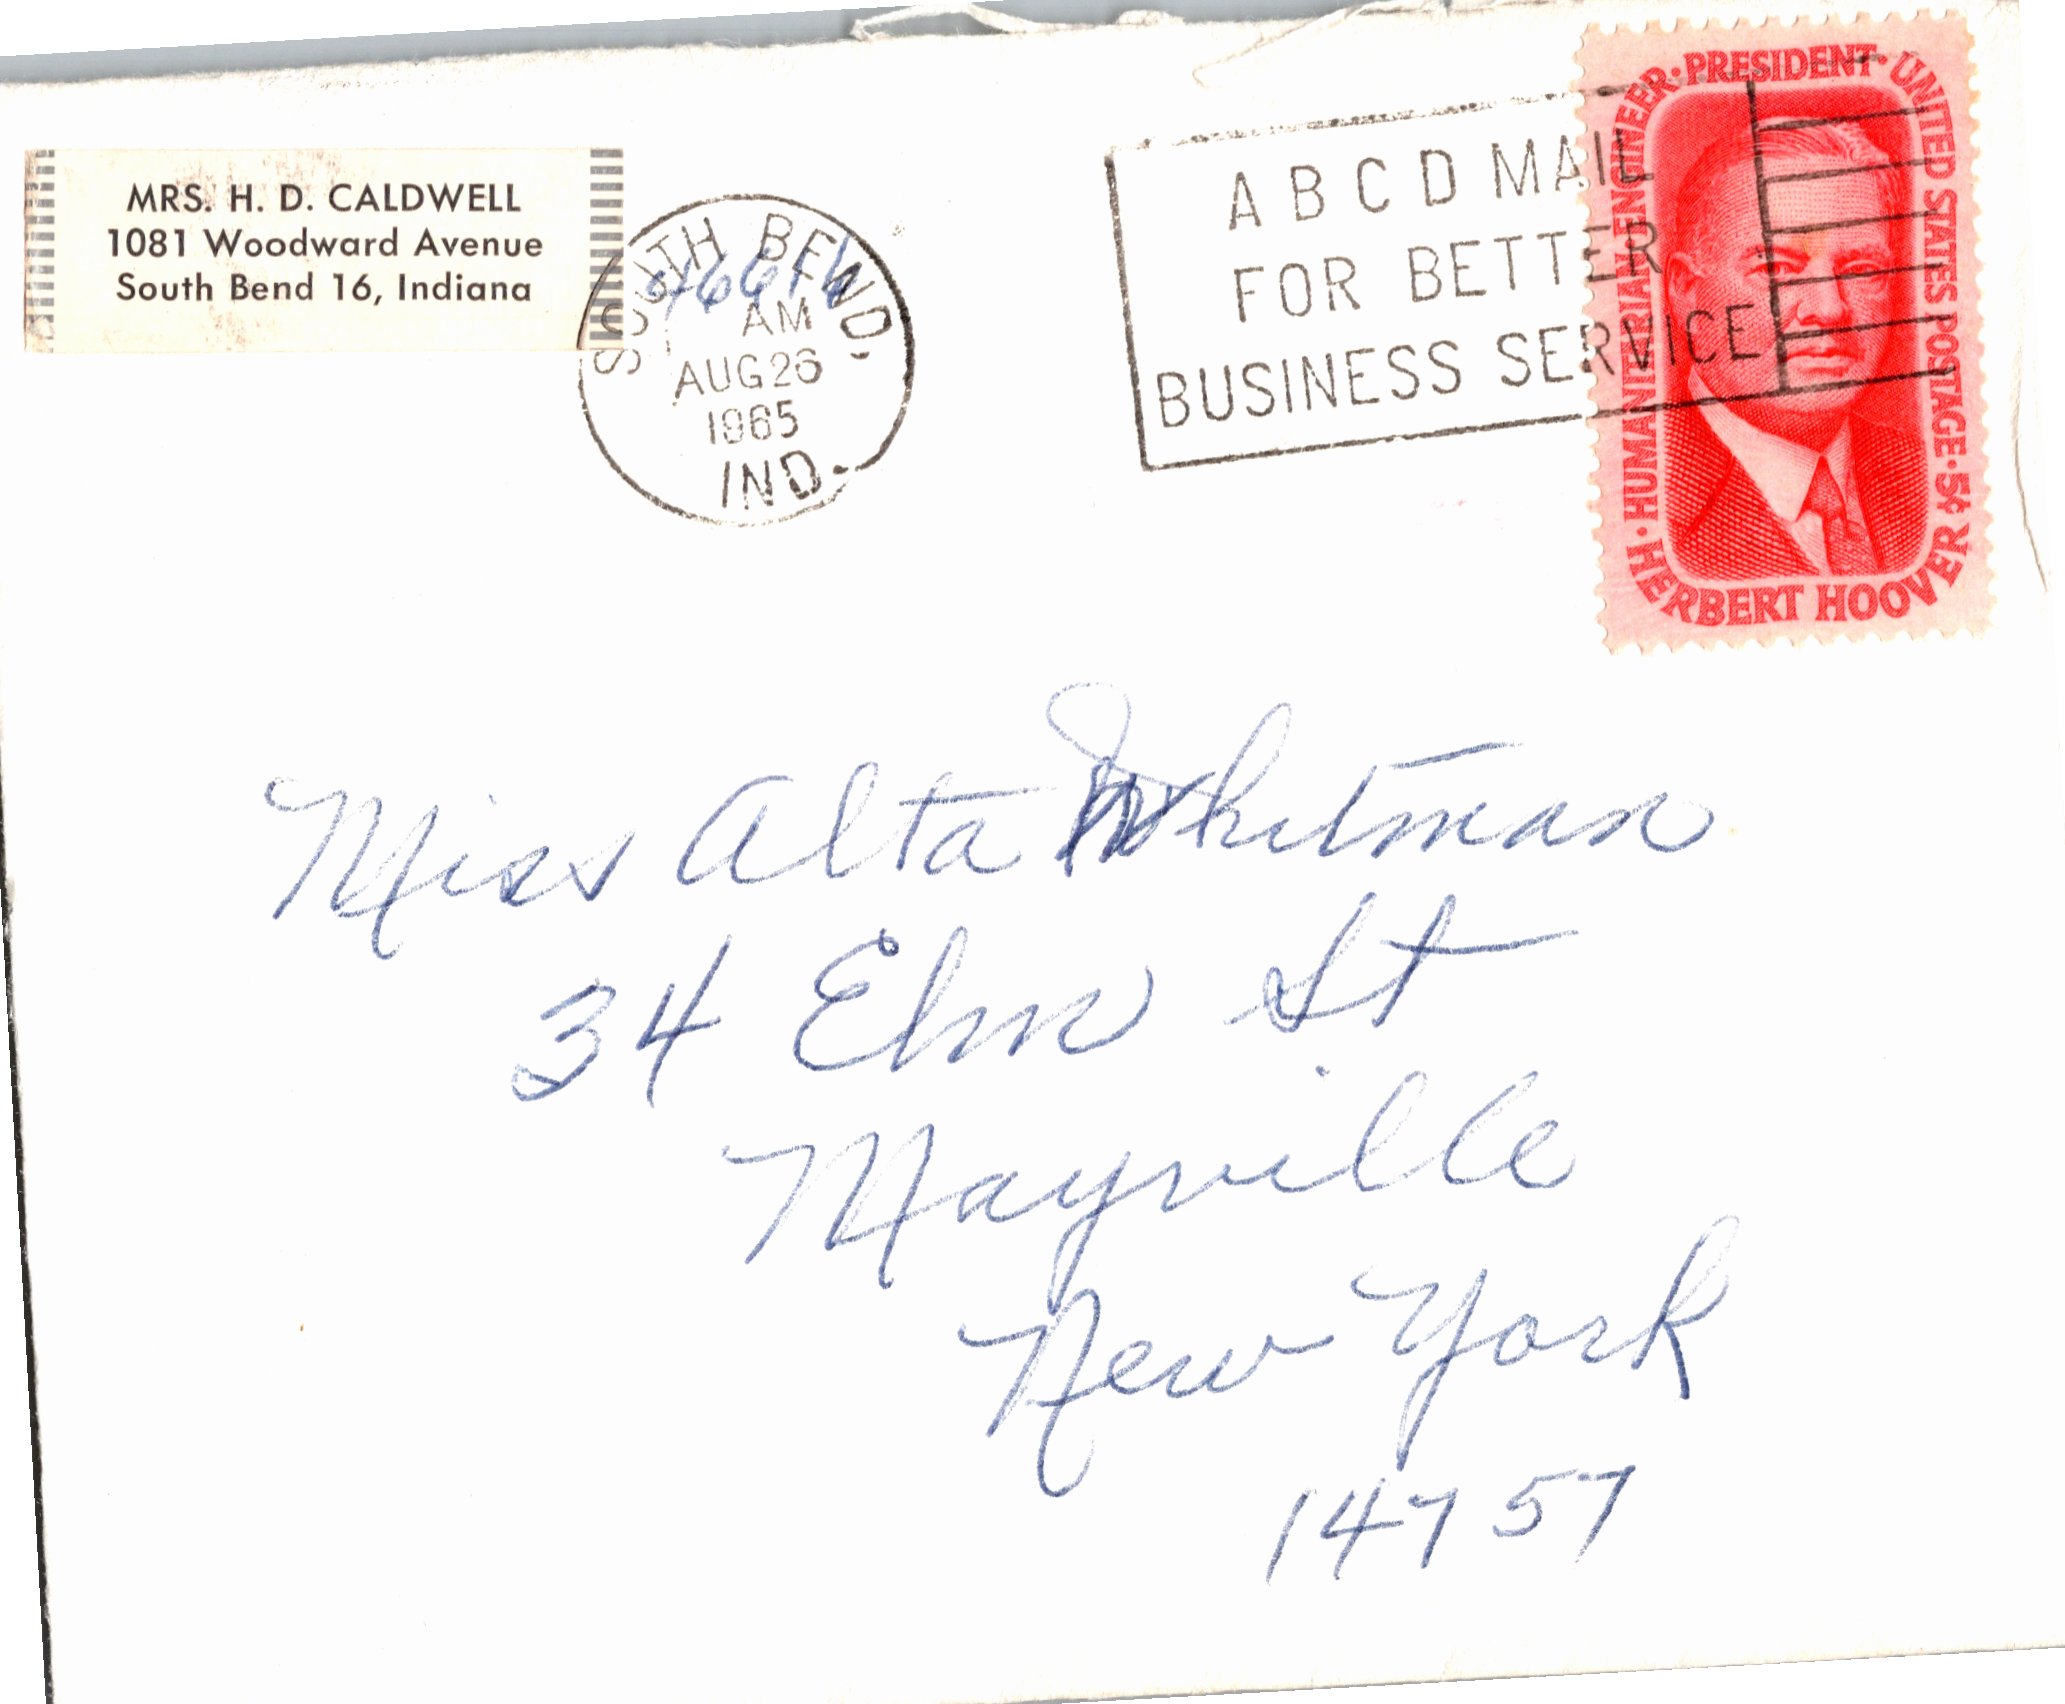 MRS. H. D. CALDWELL
1081 Woodward Avenue
South Bend 16, Indiana
46616
SOUTH BEND,
AM
AUG 26
1965
IND.
A B C D MAIL
FOR BETTER
BUSINESS SERVICE
HERBERT HOOVER · HUMANITARIAN · ENGINEER · PRESIDENT · UNITED STATES POSTAGE · 5¢
Miss Alta Whitman
34 Elm St
Mayville
New York
14757